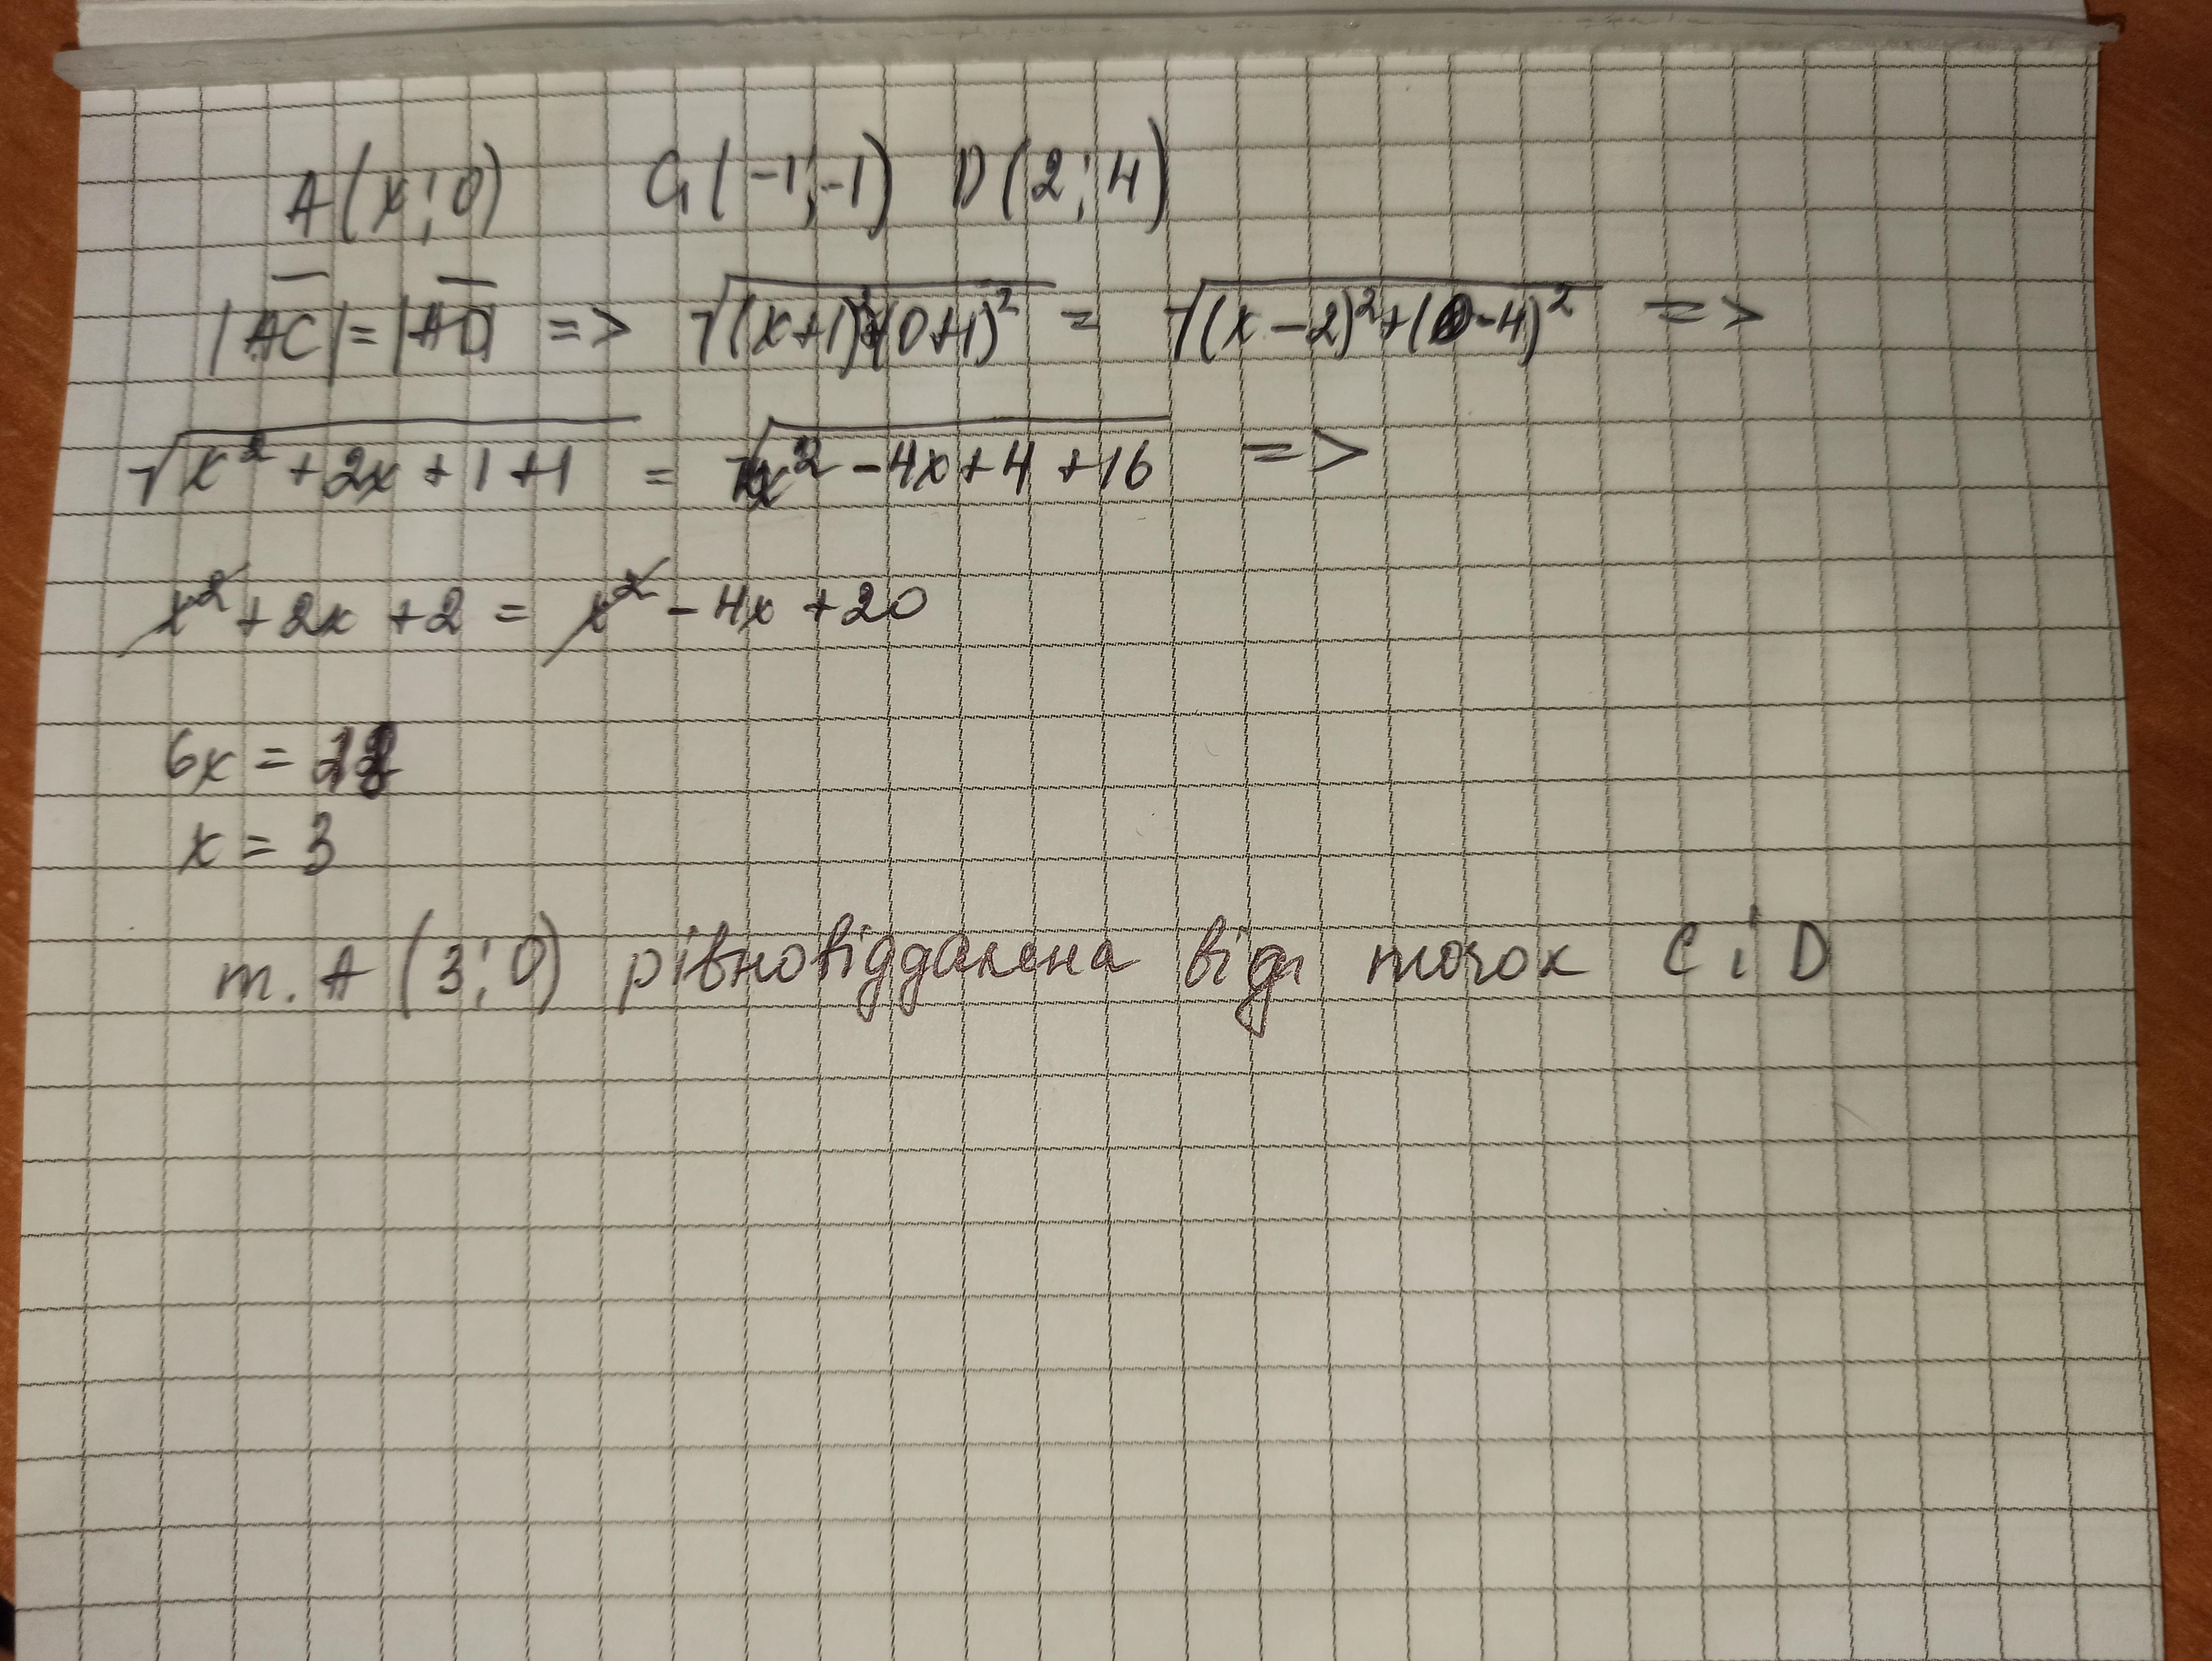 A(x;0) C(-1;-1) D(2;4)
|AC|=|AD| => √(x+1)²+(0+1)² = √(x-2)²+(0-4)² =>
√x²+2x+1+1 = √x²-4x+4+16 =>
x²+2x+2 = x²-4x+20
6x = 18
x = 3
т. А (3;0) рівновіддалена від точок С і D